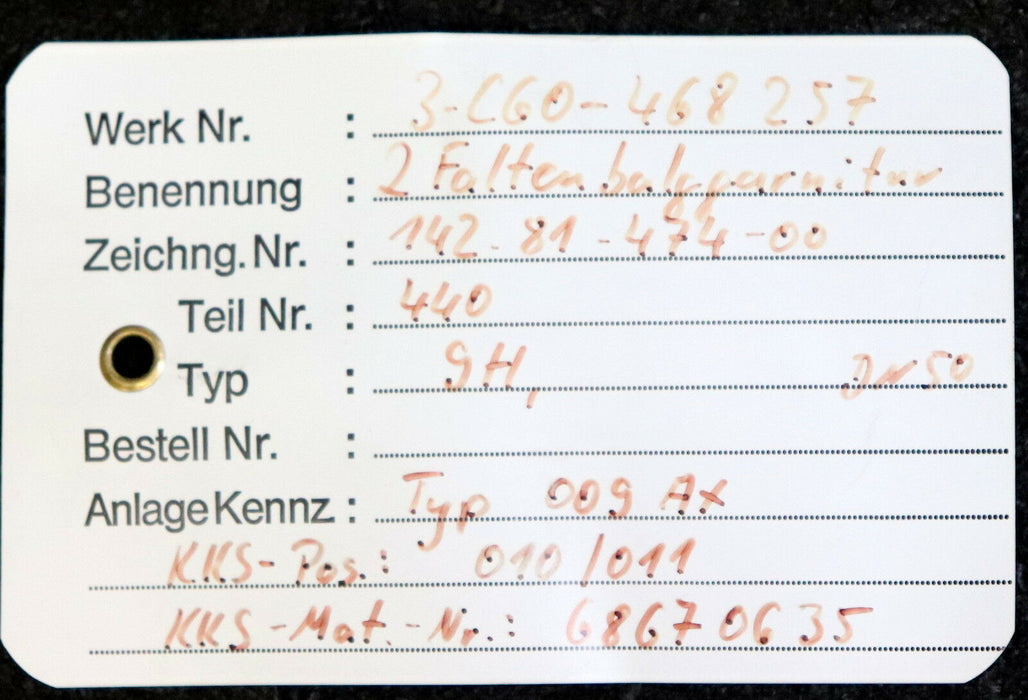 Werk Nr. : 3-C60-468 257
Benennung : 2 Faltenbalggarnitur
Zeichng. Nr. : 142-81-474-00
Teil Nr. : 440
Typ : 9H, DN 50
Bestell Nr. :
Anlage Kennz : Typ 009 Ax
KKS-Pos.: 010/011
KKS-Mat.-Nr.: 68670635